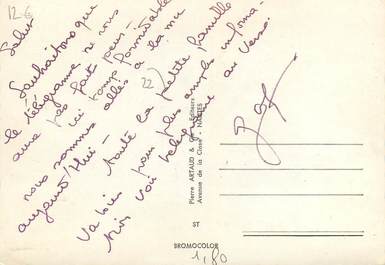 12 €
Salut
Souhaitons que
le télégramme ne vous
aura pas fait peur -
ici temps formidable
nous sommes allés à la mer
aujourd'hui - toute la petite famille
Va bien pour plus amples informa-
voir au verso.
22)
Pierre ARTAUD & Cie - Editeurs
Avenue de la Close - NANTES
ST
BROMOCOLOR
1,80